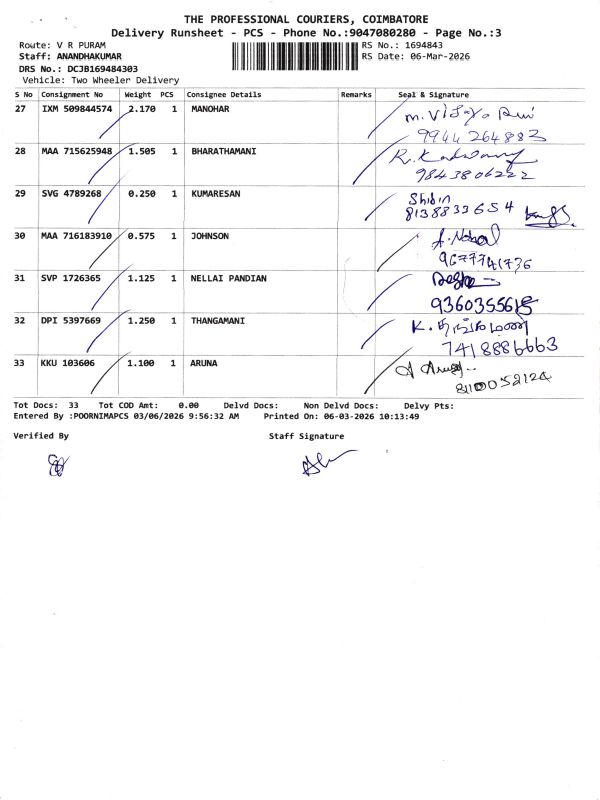 THE PROFESSIONAL COURIERS, COIMBATORE
Delivery Runsheet - PCS - Phone No.:9047080280 - Page No.:3
Route: V R PURAM
RS No.: 1694843
Staff: ANANDHAKUMAR
RS Date: 06-Mar-2026
DRS No.: DCJB169484303
Vehicle: Two Wheeler Delivery
S No Consignment No Weight PCS Consignee Details Remarks Seal & Signature
27 IXM 509844574 2.170 1 MANOHAR
9944 264883
28 MAA 715625948 1.505 1 BHARATHAMANI
9843806222
29 SVG 4789268 0.250 1 KUMARESAN Shibin
8138833654
30 MAA 716183910 0.575 1 JOHNSON
9677741736
31 SVP 1726365 1.125 1 NELLAI PANDIAN
9360355615
32 DPI 5397669 1.250 1 THANGAMANI K. தங்கமணி
7418886663
33 KKU 103606 1.100 1 ARUNA
8110052124
Tot Docs: 33 Tot COD Amt: 0.00 Delvd Docs: Non Delvd Docs: Delvy Pts:
Entered By :POORNIMAPCS 03/06/2026 9:56:32 AM Printed On: 06-03-2026 10:13:49
Verified By Staff Signature